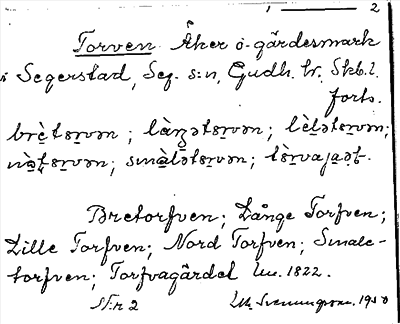 1 — 2
Torven Åker o- gärdesmark
i Segerstad, Seg. s:n, Gudh. hr, Skb. l.
forts.
brètərvən ; làŋətərvən ; lèlətərvən ;
nòtərvən ; smàlətərvən ;
Bretorfven ; Långe Torfven ;
Lille Torfven ; Nord Torfven ; Smale-
torfven ; Torfvagärdet Lm. 1822.
St. r 2 1950